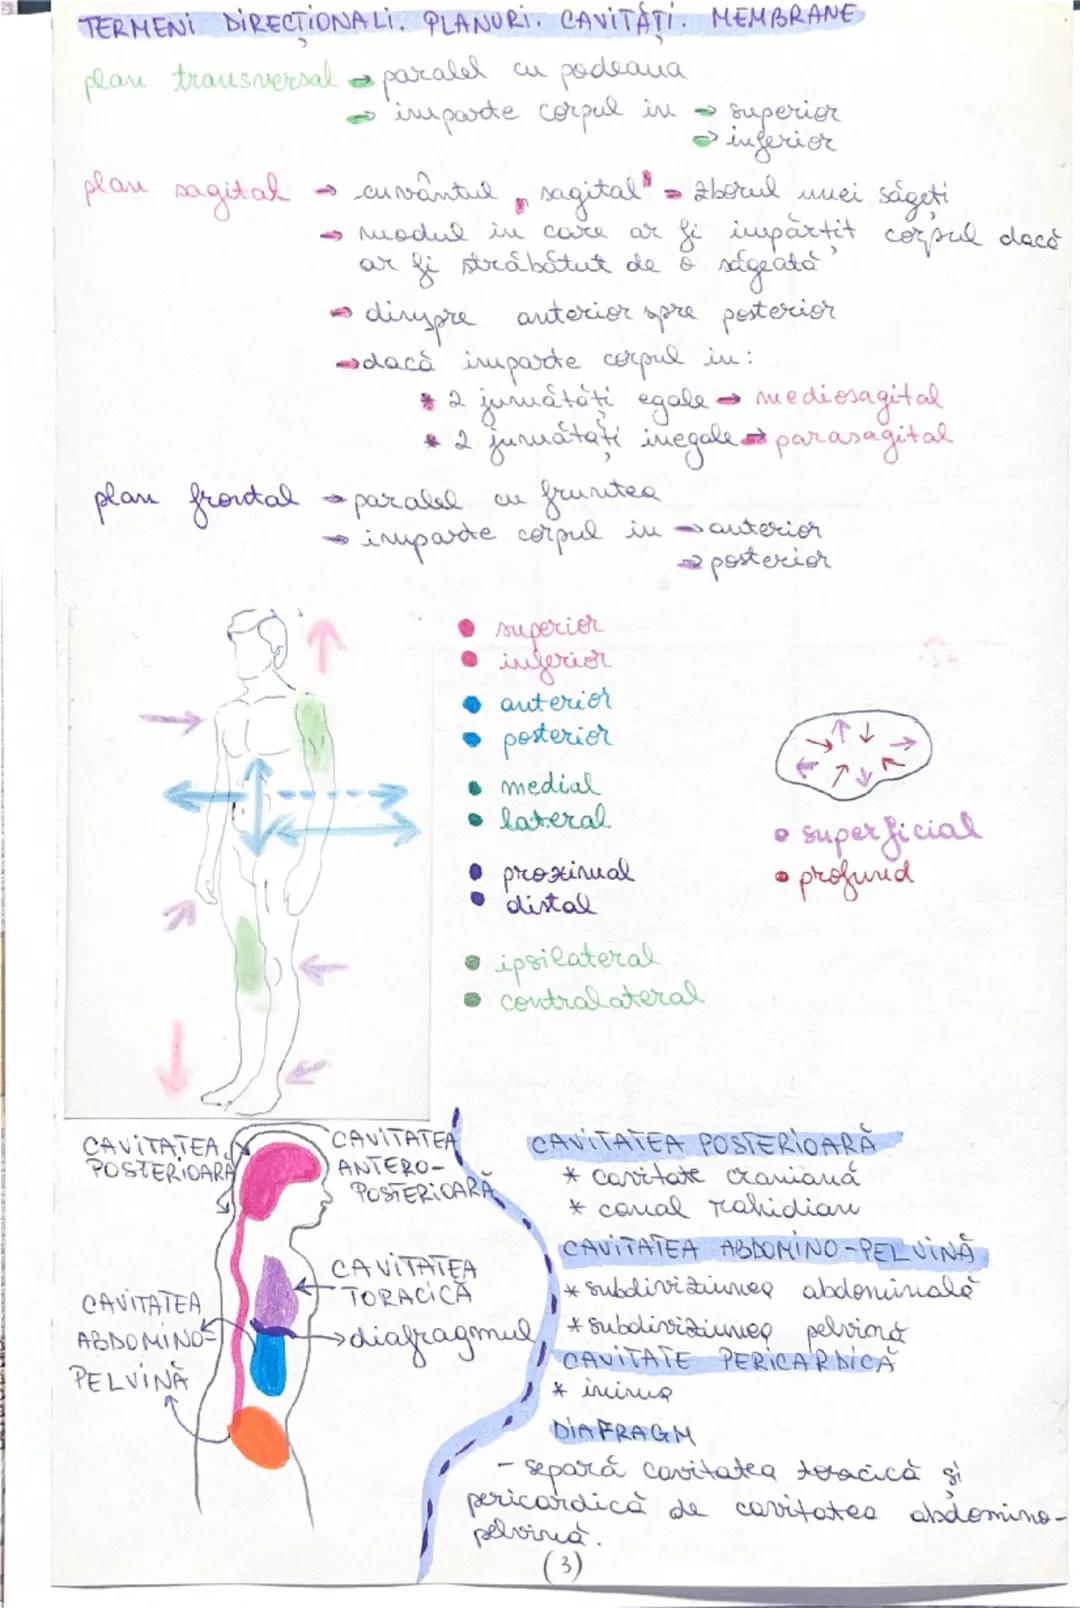 TERMENI DIRECȚIONALI. PLANURI. CAVITĂȚI. MEMBRANE
plan transversal → paralel cu podeaua
→ împarte corpul în → superior
→ inferior
plan sagital → cuvântul „sagital" = zborul unei săgeți
→ modul în care ar fi împărțit corpul dacă
ar fi străbătut de o săgeată
→ dinspre anterior spre posterior
→ dacă împarte corpul în:
* 2 jumătăți egale → mediosagital
* 2 jumătăți inegale → parasagital
plan frontal → paralel cu fruntea
→ împarte corpul în → anterior
→ posterior
• superior
• inferior
• anterior
• posterior
• medial
• lateral
• proximal
• distal
• ipsilateral
• contralateral
• superficial
• profund
CAVITATEA POSTERIOARĂ
CAVITATEA ANTERO-
POSTERIOARĂ
CAVITATEA TORACICĂ
→ diafragmul
CAVITATEA
ABDOMINO-
PELVINĂ
CAVITATEA POSTERIOARĂ
* cavitate craniană
* canal rahidian
CAVITATEA ABDOMINO-PELVINĂ
* subdiviziunea abdominală
* subdiviziunea pelvină
CAVITATE PERICARDICĂ
* inima
DIAFRAGM
- separă cavitatea toracică și
pericardică de cavitatea abdomino-
pelvină.
(3)